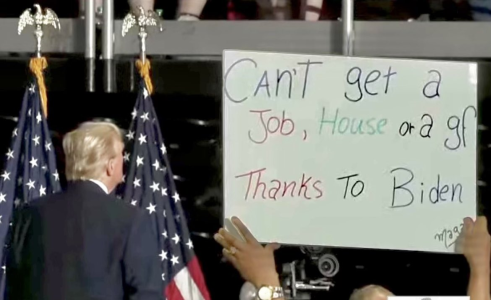 CAN'T get a
Job, House or a gf
Thanks To Biden
maga